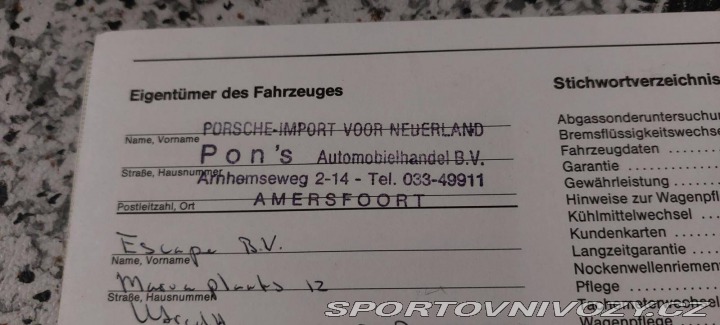 Eigentümer des Fahrzeuges
PORSCHE-IMPORT VOOR NEDERLAND
Name, Vorname
Pon's Automobielhandel B.V.
Straße, Hausnummer
Arnhemseweg 2-14 - Tel. 033-49911
AMERSFOORT
Postleitzahl, Ort
Escape B.V.
Name, Vorname
12
Straße, Hausnummer
Stichwortverzeichnis
Abgassonderuntersuchu
Bremsflüssigkeitswechse
Fahrzeugdaten .....
Garantie ..........
Gewährleistung ....
Hinweise zur Wagenpfl
Kühlmittelwechsel ....
Kundenkarten ......
Langzeitgarantie ....
Nockenwellenriemen
Pflege ............
Tachometerwechsel
Wagenpflege ......
SPORTOVNIVOZY.CZ